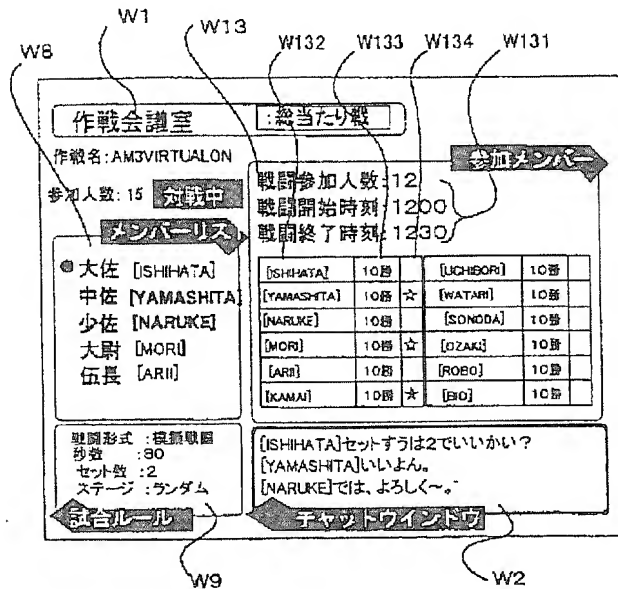 W1
W13
W132
W133
W134
W131
W8
作戦会議室
:総当たり戦
作戦名:AM3VIRTUALON
参加メンバー
参加人数:15
対戦中
戦闘参加人数:12
戦闘開始時刻:1200
戦闘終了時刻:1230
メンバーリスト
●大佐 [ISHIHATA]
中佐 [YAMASHITA]
少佐 [NARUKE]
大尉 [MORI]
伍長 [ARII]
[ISHIHATA] 10勝 [UCHIBORI] 10勝
[YAMASHITA] 10勝 ☆ [WATARI] 10勝
[NARUKE] 10勝 [SONODA] 10勝
[MORI] 10勝 ☆ [OZAKI] 10勝
[ARII] 10勝 [ROBO] 10勝
[KAMAI] 10勝 ★ [BIO] 10勝
戦闘形式 :模擬戦闘
秒数 :80
セット数 :2
ステージ :ランダム
試合ルール
[ISHIHATA]セットすうは2でいいかい?
[YAMASHITA]いいよん。
[NARUKE]では、よろしく~。
チャットウインドウ
W9
W2